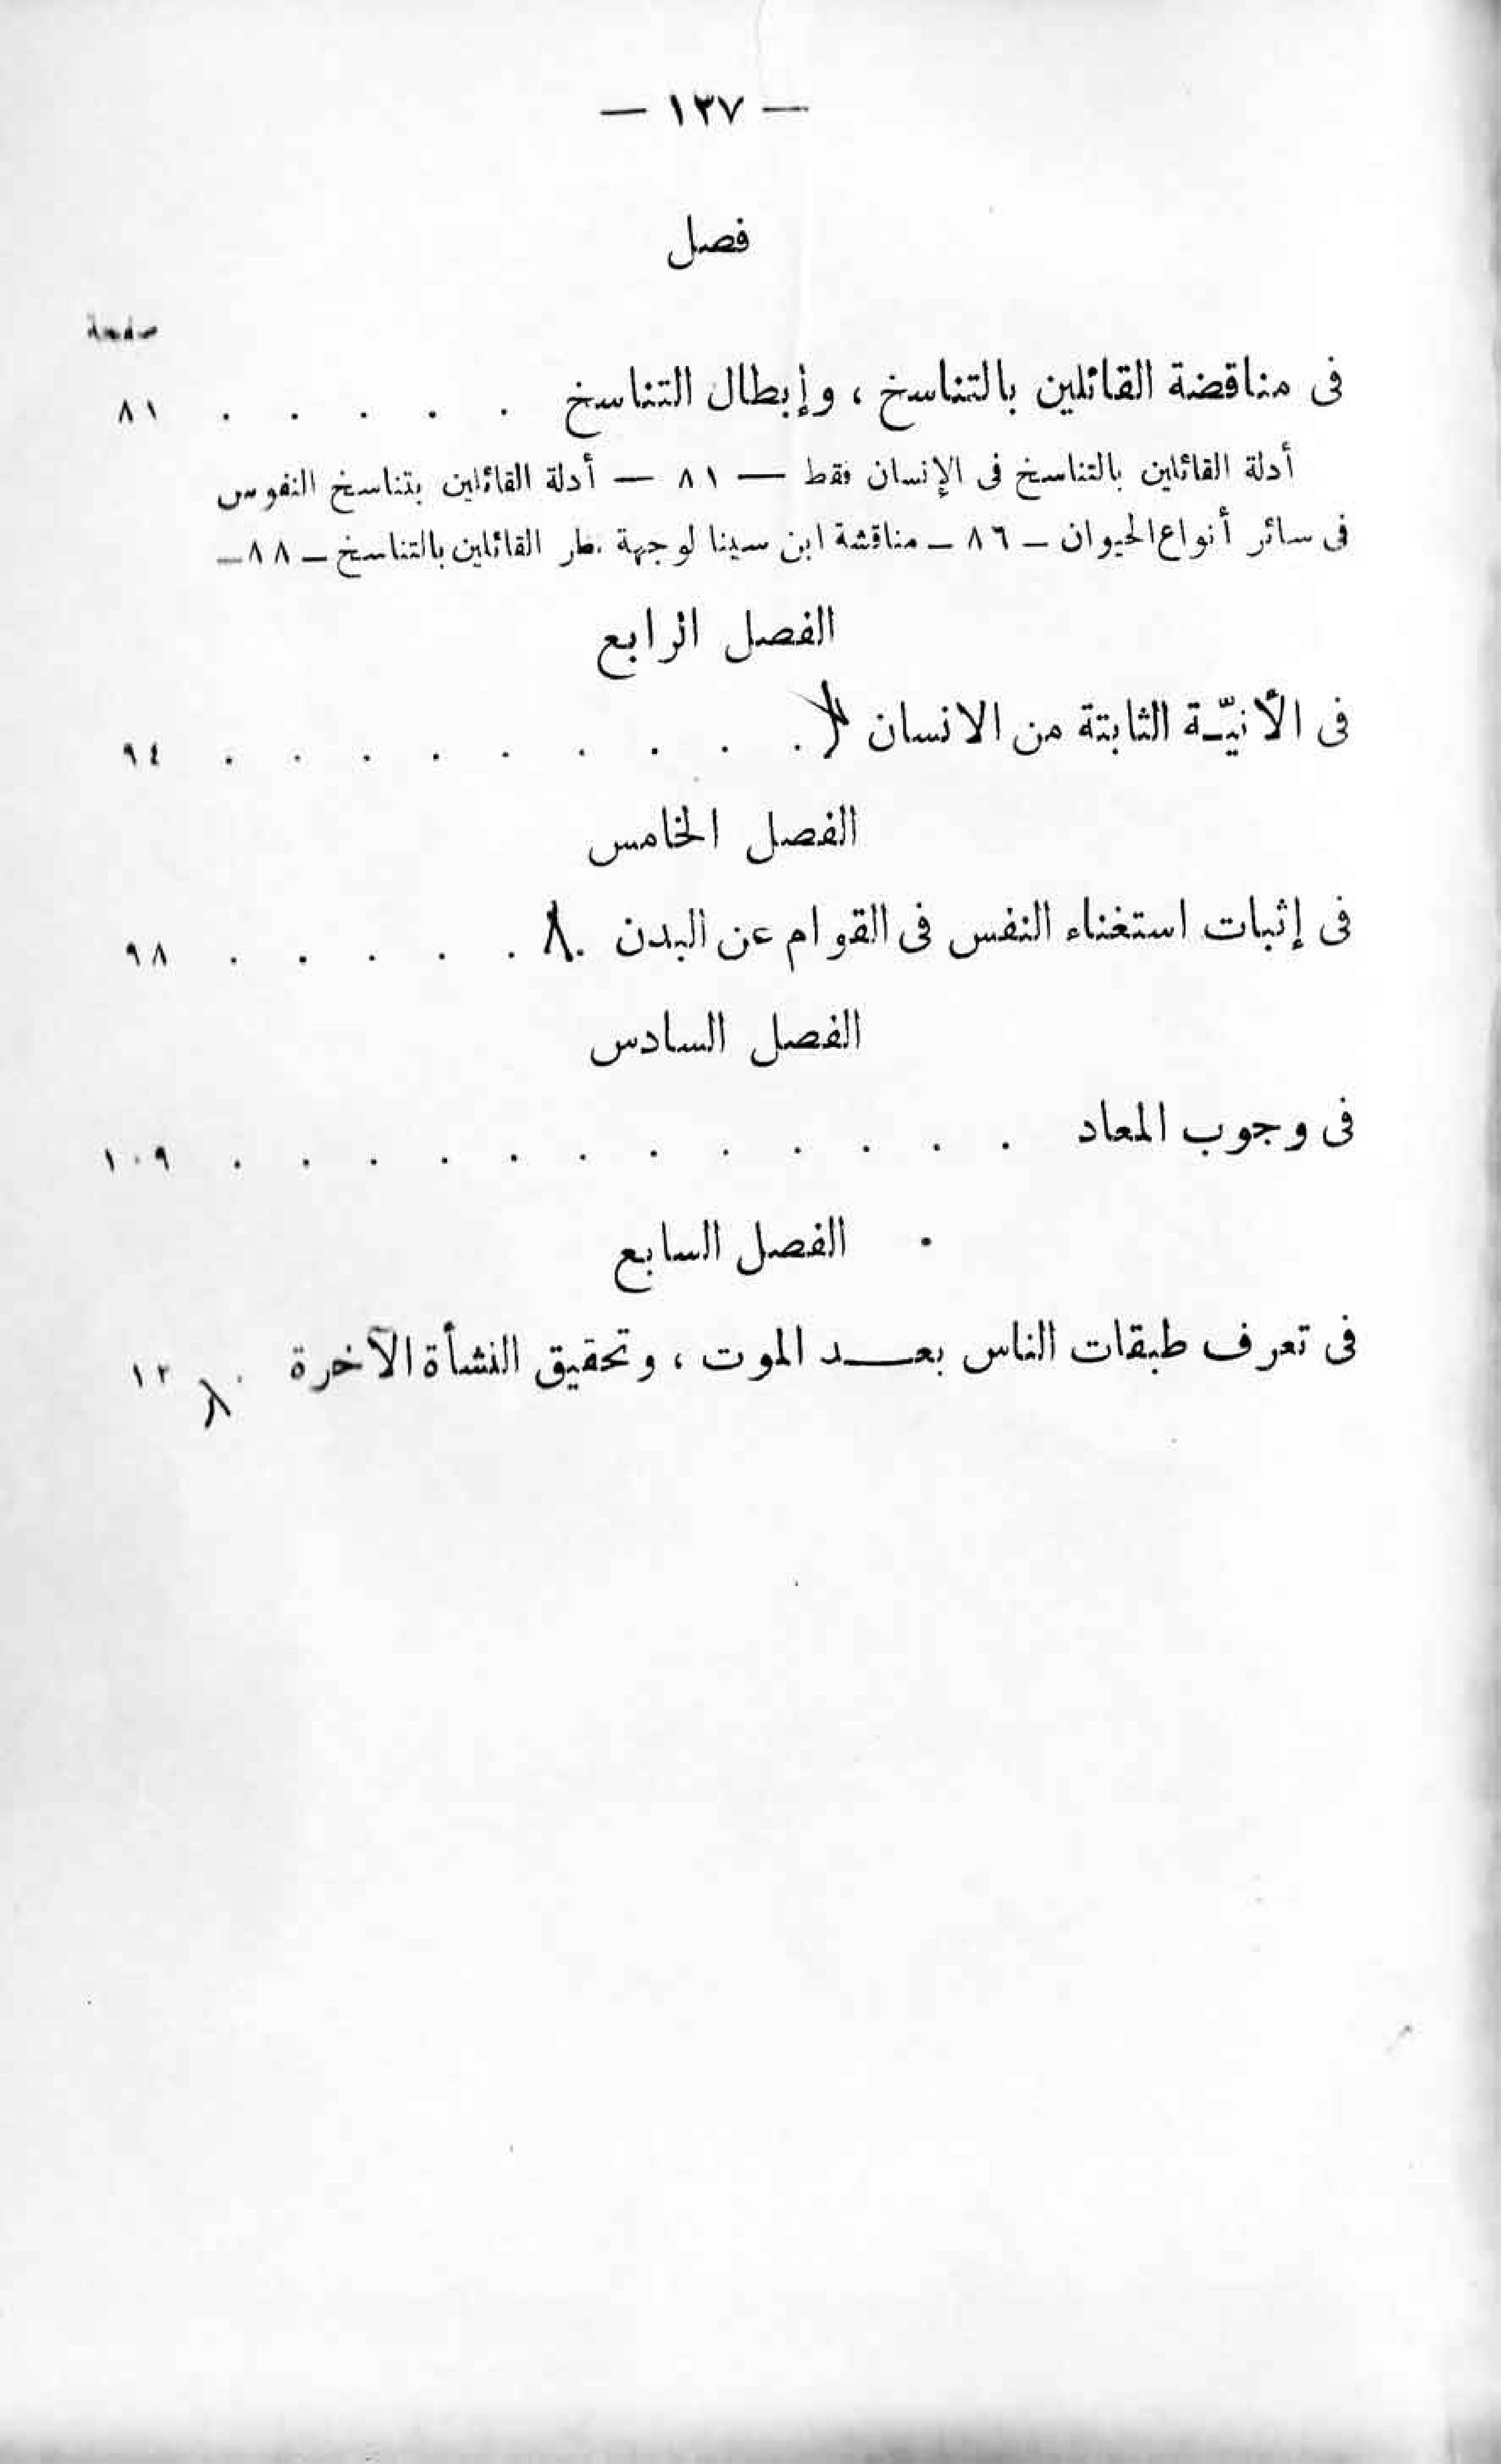 — ١٣٧ —
فصل
صفحة
فى مناقضة القائلين بالتناسخ ، وإبطال التناسخ . . . . . ٨١
أدلة القائلين بالتناسخ فى الإنسان فقط — ٨١ — أدلة القائلين بتناسخ النفوس
فى سائر أنواع الحيوان — ٨٦ — مناقشة ابن سينا لوجهة القائلين بالتناسخ — ٨٨ —
الفصل الرابع
فى الأنيّة الثابتة من الانسان . . . . . . . . . ٩٤
الفصل الخامس
فى إثبات استغناء النفس فى القوام عن البدن . . . . . . ٩٨
الفصل السادس
فى وجوب المعاد . . . . . . . . . . . . ١٠٩
الفصل السابع
فى تعرف طبقات الناس بعـــد الموت ، وتحقيق النشأة الآخرة .